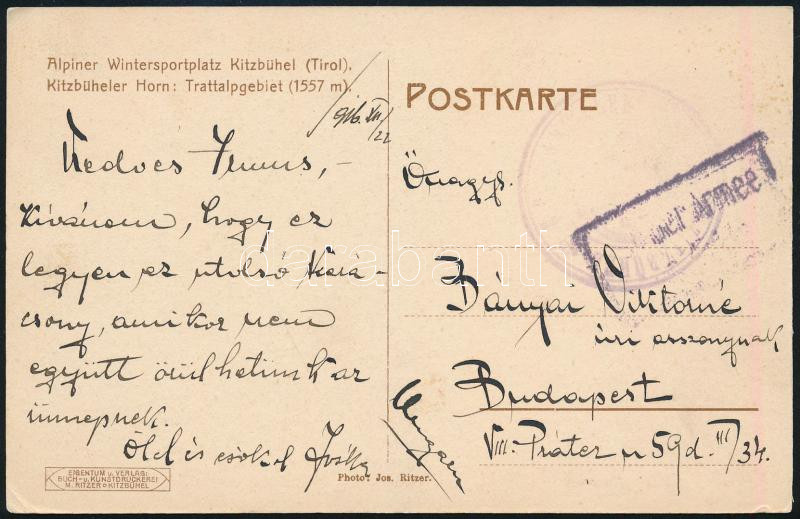 Alpiner Wintersportplatz Kitzbühel (Tirol).
Kitzbüheler Horn: Trattalpgebiet (1557 m).
916. XII/22
Kedves
Kívánom, hogy ez
legyen az utolsó Kará-
csony, amikor nem
együtt örülhetünk az
ünnepnek.
Ölel és csókol Jóska
EIGENTUM u. VERLAG:
BUCH- u. KUNSTDRUCKEREI
M. RITZER KITZBÜHEL
POSTKARTE
Armee
Önagys.
Bányai Viktorné
úri asszonynak
Budapest
VIII. Práter u 59d. III/34.
Ungarn
Photo: Jos. Ritzer.
darabanth